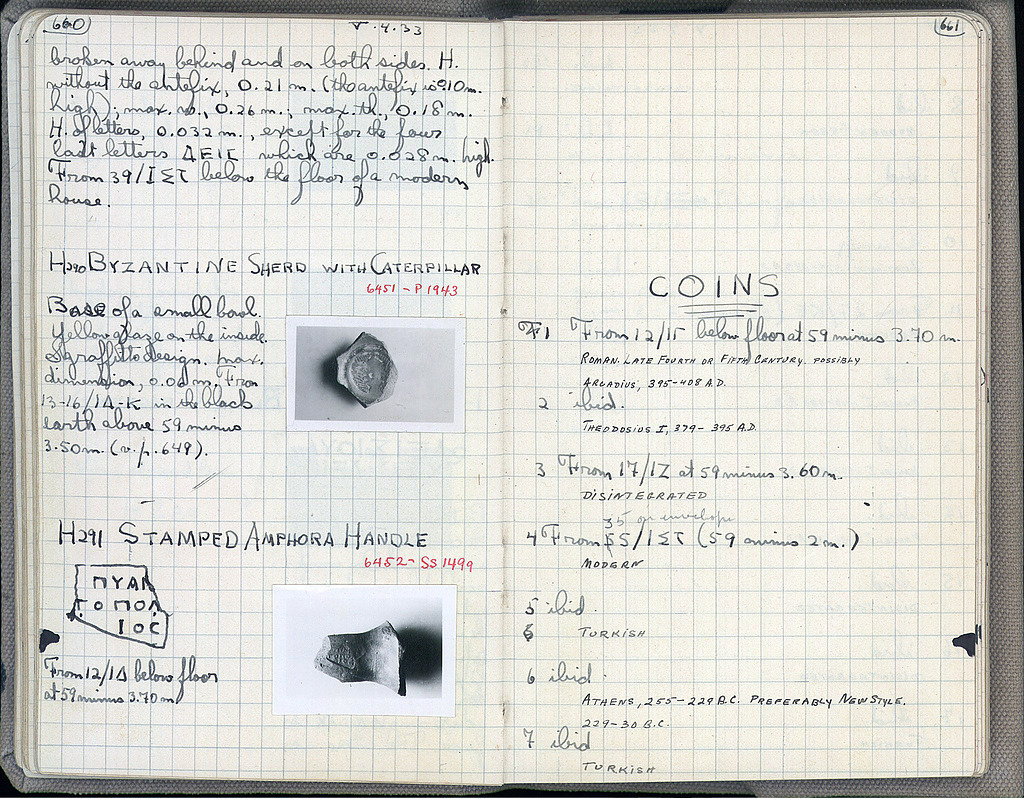 660
V.4.33
broken away behind and on both sides. H.
without the antefix, 0.21 m. (the antefix is 0.10 m.
high); max. w., 0.26 m.; max. th., 0.18 m.
H. of letters, 0.032 m., except for the four
last letters ΔΕΙΣ which are 0.028 m. high.
From 39/ΙΣΤ below the floor of a modern
house.
H290 BYZANTINE SHERD WITH CATERPILLAR
6451 - P 1943
Base of a small bowl.
Yellow glaze on the inside.
Sgraffitto design. max.
dimension, 0.06 m. From
13-16/ΙΔ-Κ in the black
earth above 59 minus
3.50 m. (v. p. 649).
H291 STAMPED AMPHORA HANDLE
6452 - SS 1499
ΠΥΑΝ
ΤΟΠΟΛ
ΙΟC
From 12/ΙΔ below floor
at 59 minus 3.70 m
661
COINS
1 From 12/ΙΕ below floor at 59 minus 3.70 m.
ROMAN. LATE FOURTH OR FIFTH CENTURY. POSSIBLY
ARCADIUS, 395-408 A.D.
2 ibid.
THEODOSIUS I, 379-395 A.D.
3 From 17/ΙΖ at 59 minus 3.60 m.
DISINTEGRATED
35 on envelope
4 From 55/ΙΣΤ (59 minus 2 m.)
MODERN
5 ibid.
6 TURKISH
6 ibid.
ATHENS, 255-229 B.C. PREFERABLY NEW STYLE.
229-30 B.C.
7 ibid
TURKISH